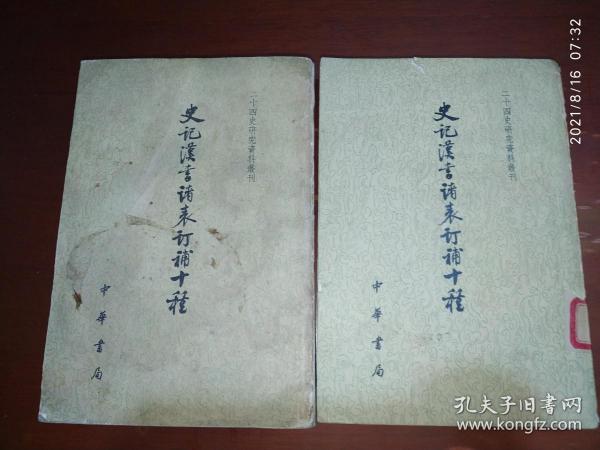 二十四史研究資料叢刊
史記漢書諸表訂補十種
中華書局
二十四史研究資料叢刊
史記漢書諸表訂補十種
中華書局
2021/8/16 07:32
孔夫子旧书网
www.kongfz.com